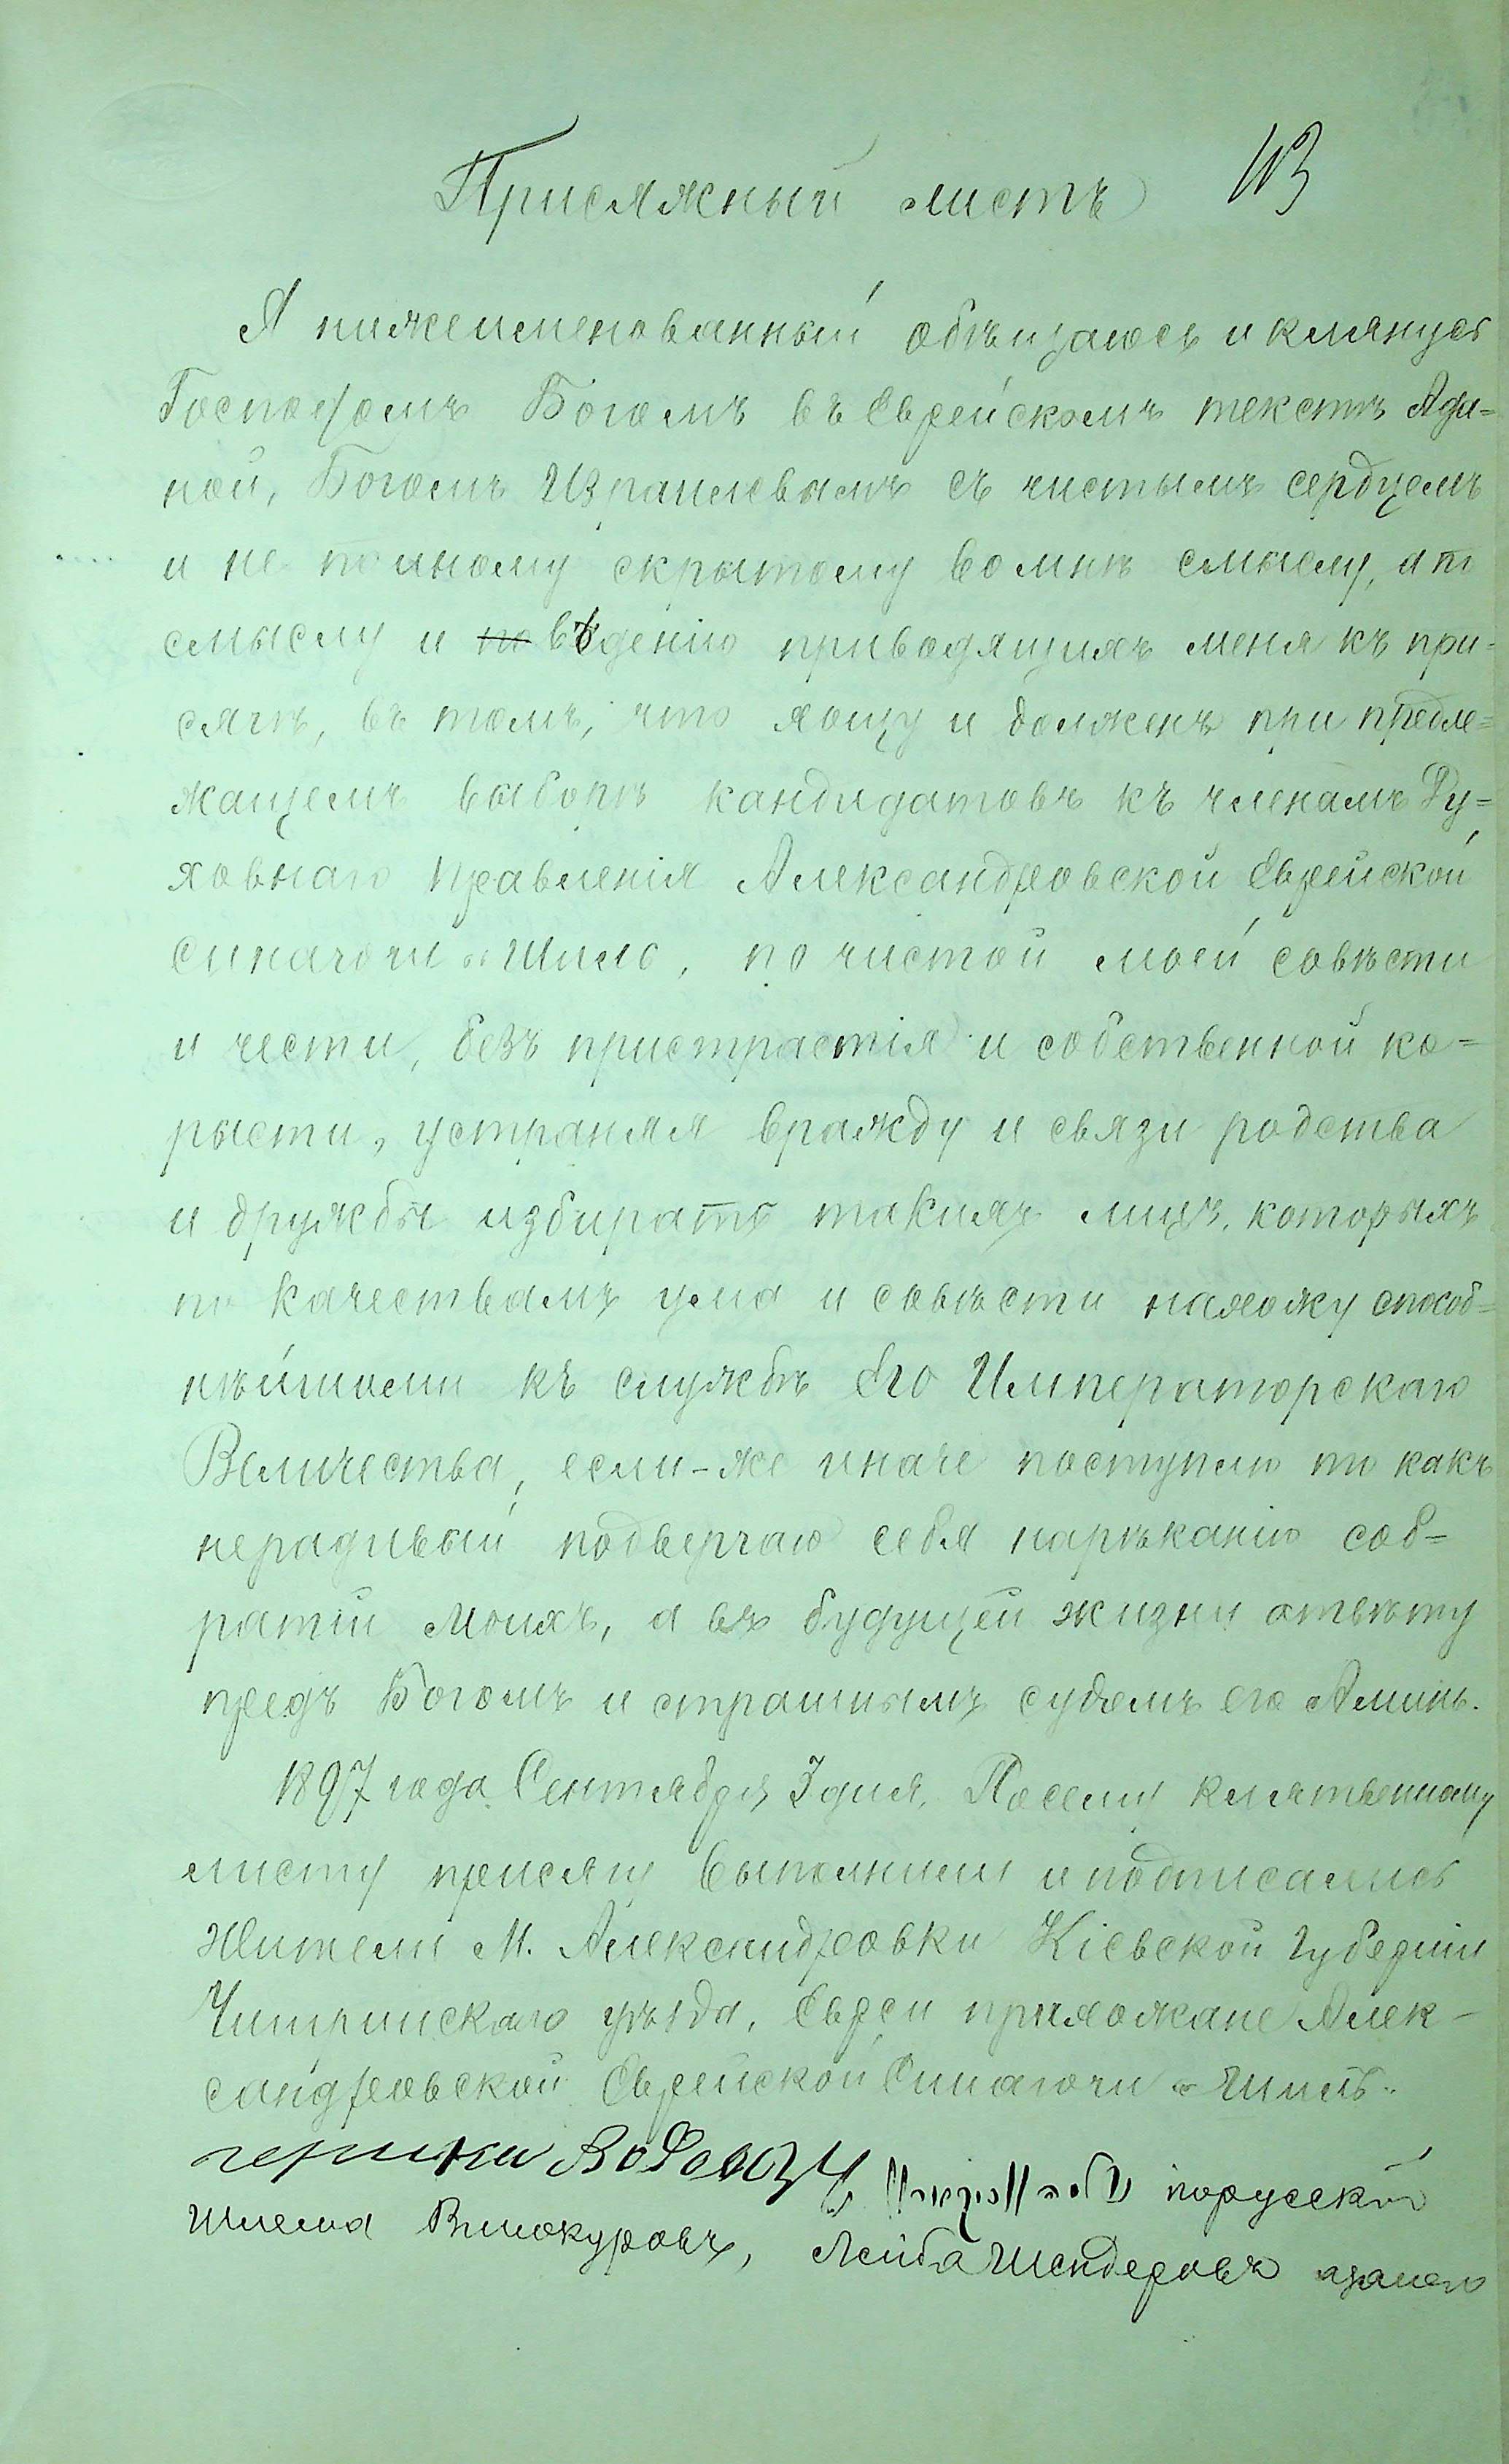 Присяжный листъ
113
Я нижеименованный обѣщаюсь и клянусь
Господомъ Богомъ въ Еврейскомъ текстѣ Адо=
ной, Богомъ Израилевымъ съ чистымъ сердцемъ
и не по иному скрытому во мнѣ смыслу, а по
смыслу и вѣденію приводящихъ меня къ при=
сягѣ, въ томъ, что я хощу и долженъ при предле=
жащемъ выборѣ кандидатовъ къ членамъ Ду=
ховнаго Правленія Александровской Еврейской
Синагоги „Шило", по чистой моей совѣсти
и чести, безъ пристрастія и собственной ко=
рысти, устраняя вражду и связи родства
и дружбы избирать такихъ лицъ, которыхъ
по качествамъ ума и совѣсти нахожу способ=
нѣйшими къ службѣ Его Императорскаго
Величества, если-же иначе поступлю то какъ
нерадивый подвергаю себя нарѣканію соб=
ратій моихъ, а въ будущей жизни отвѣту
предъ Богомъ и страшнымъ судомъ его Аминь.
1897 года Сентября 3 дня. По сему клятвенному
листу присягу выполнили и подписались
Жители М. Александровки Кіевской Губерніи
Чигиринскаго уѣзда, Евреи прихожане Алек-
сандровской Еврейской Синагоги „Шило".
порусски
Шлема Винокуровъ, Лейба Шендеровъ